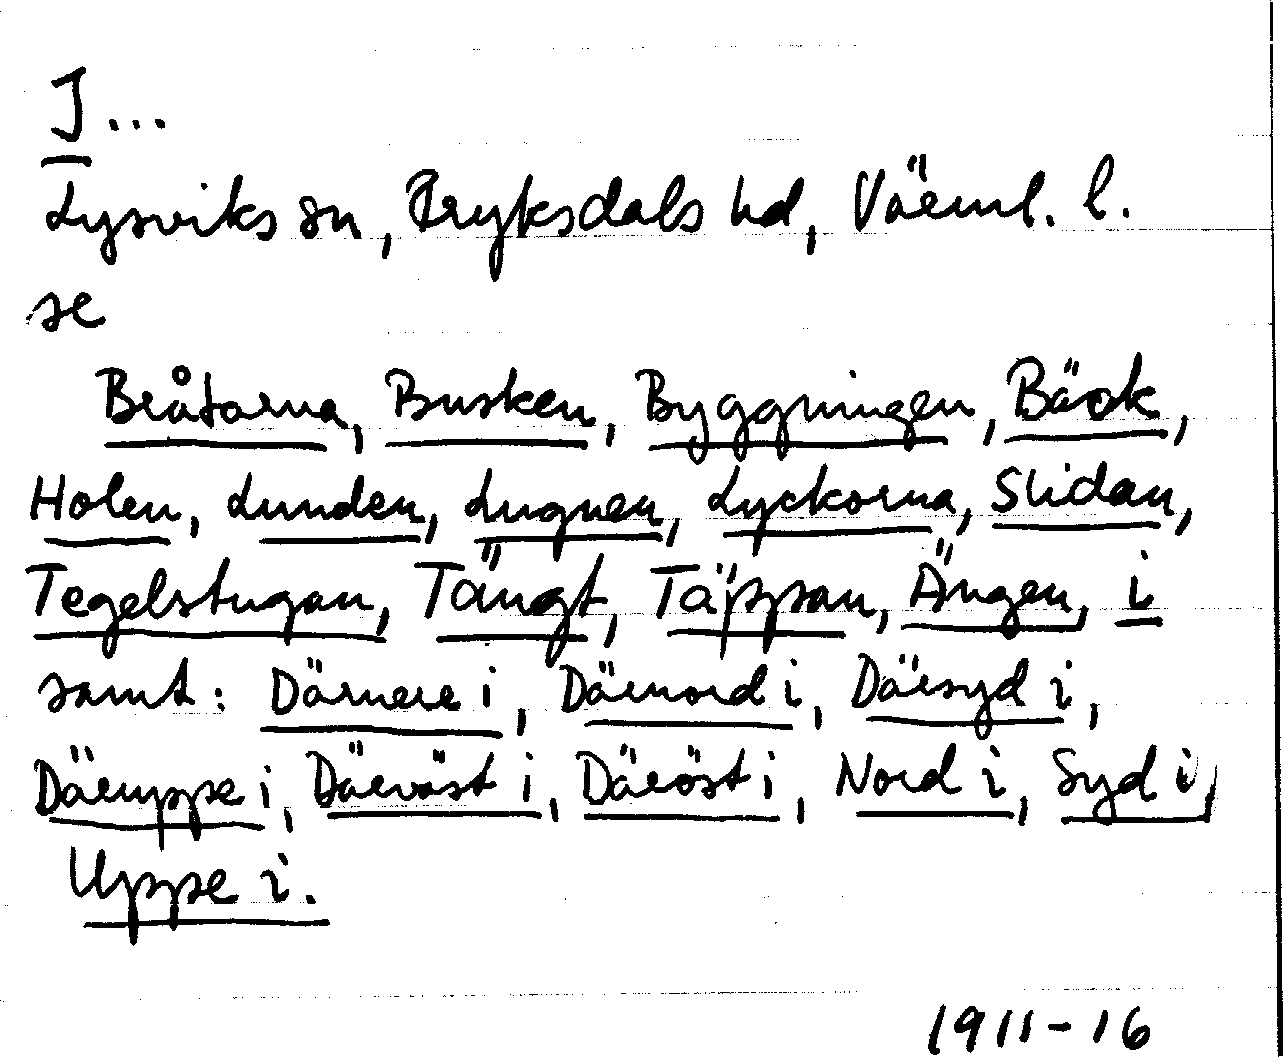 I...
Lysviks sn, Fryksdals hd, Värml. l.
se
Bråtarna, Busken, Byggningen, Bäck,
Holen, Lunden, Lugnen, Lyckorna, Slidan,
Tegelstugan, Tängt, Täppan, Ängen, i
samt: Därnere i, Därnord i, Därsyd i,
Däruppe i, Därväst i, Däröst i, Nord i, Syd i,
Uppe i.
1911-16